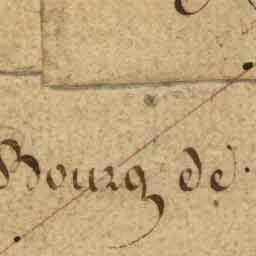 Bourg de